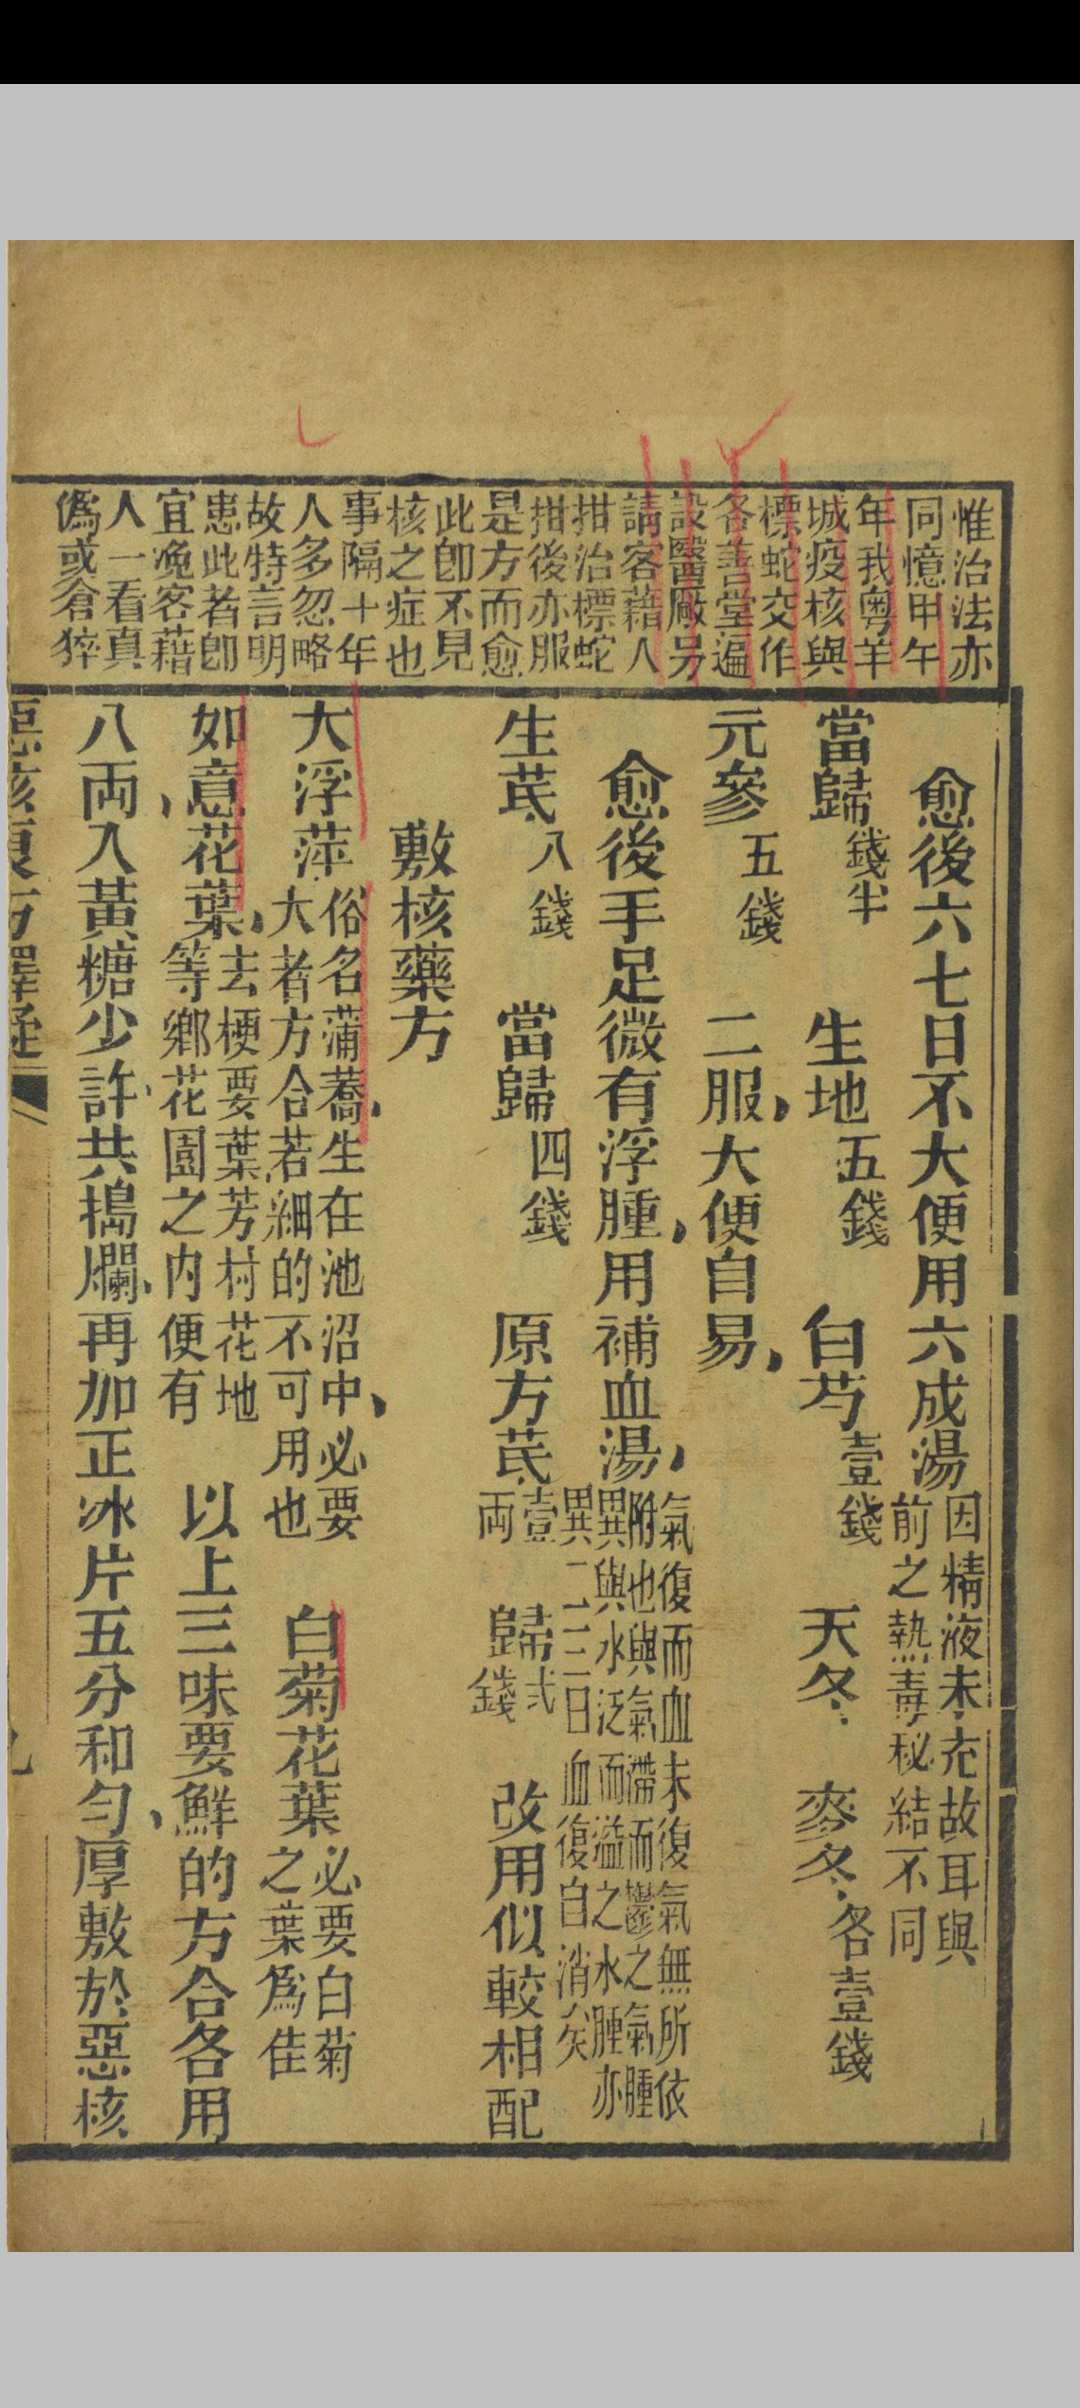 惟治法亦
同憶甲午
年我粤羊
城疫核與
標蛇交作
各善堂遍
設醫厰另
請客藉人
拑治標蛇
拑後亦服
是方而愈
此卽不見
核之症也
事隔十年
人多忽略
故特言明
患此者卽
宜浼客藉
人一看真
僞或倉猝
愈後六七日不大便用六成湯
因精液未充故耳與
前之熱毒秘結不同
當歸錢半 生地五錢 白芍壹錢 天冬 麥冬各壹錢
元參五錢 二服大便自易
愈後手足微有浮腫用補血湯
氣復而血未復氣無所依
附也與氣滯而鬱之氣腫
異與水泛而溢之水腫亦
異二三日血復自消矣
生芪八錢 當歸四錢 原方芪壹両 歸弍錢 改用似較相配
敷核藥方
大浮萍
俗名蒲蕎生在池沼中必要
大者方合若細的不可用也
白菊花葉
必要白菊
之葉爲佳
如意花葉
去梗要葉芳村花地
等鄉花園之内便有
以上三味要鮮的方合各用
八両入黃糖少許共搗爛再加正冰片五分和勻厚敷於惡核